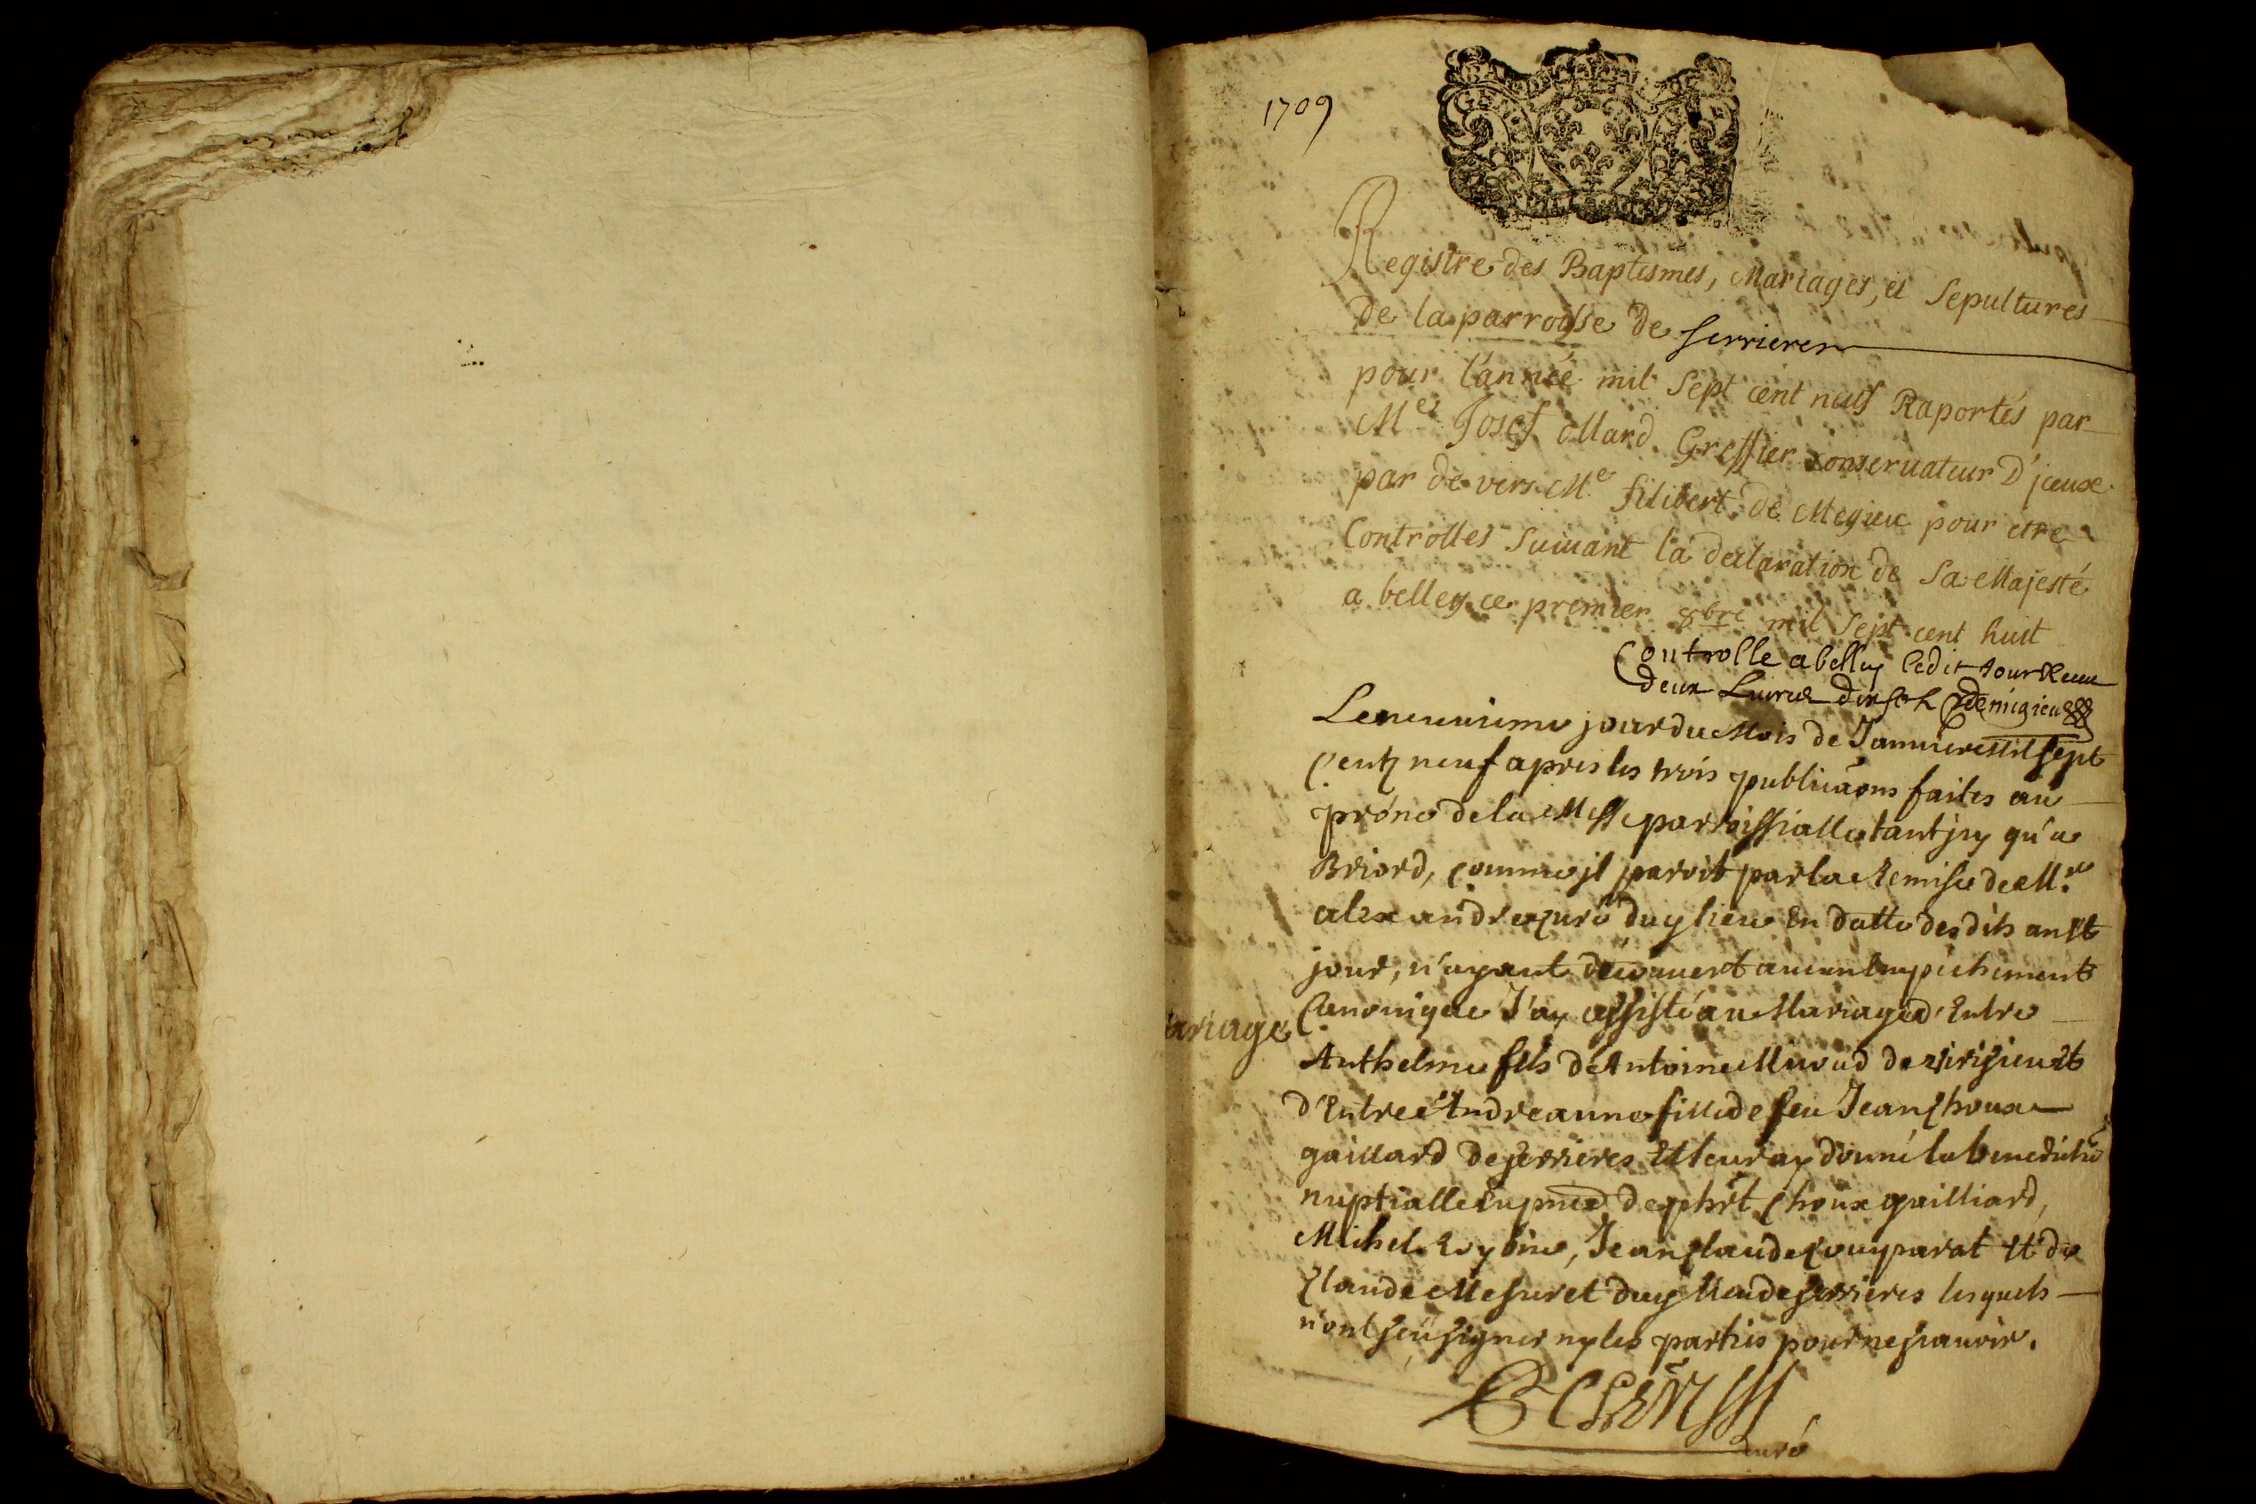 1709
Registre des Baptesmes, Mariages, et Sepultures
de la parroysse de serrieres
pour l'année mil sept cent neuf Raportés par
Me Josef ollard Greffier conseruateur D'jceux
par de vers Me filibert de Megieu pour etre
Controlles suiuant la declaration de Sa Majesté
a belley ce premier 8bre mil sept cent huit
Controlle a belley ledit jour Receu
deux Liures dix sols Demigieu
Le neuuieme jour du Mois de Januier Mil sept
Centz neuf apres les trois publicãons faites au
prône de la Messe parroissialle tant jcy qu'a
Briord, comme jl paroit par la Remise de Mre
alexandre curé duy lieu En datte desdits an Et
jour, n'ayant decouuert aucun Empechement
Canonique J'ay assisté au Mariage d'Entre
Mariage
Anthelme fils de Antoine Miroud de virisieu Et
d'Entre Andreanne fille de feu Jean Choux
gaillard de serrieres Et leur ay donné la benedictiõ
nuptialle En pnce de phrt Choux gailliard,
Michel, Jean Claude Comparat Et de
Claude Mesuret duy lieu de serrieres lesquels
n'ont sçeu signer ny les parties pour ne sçauoir.
curé